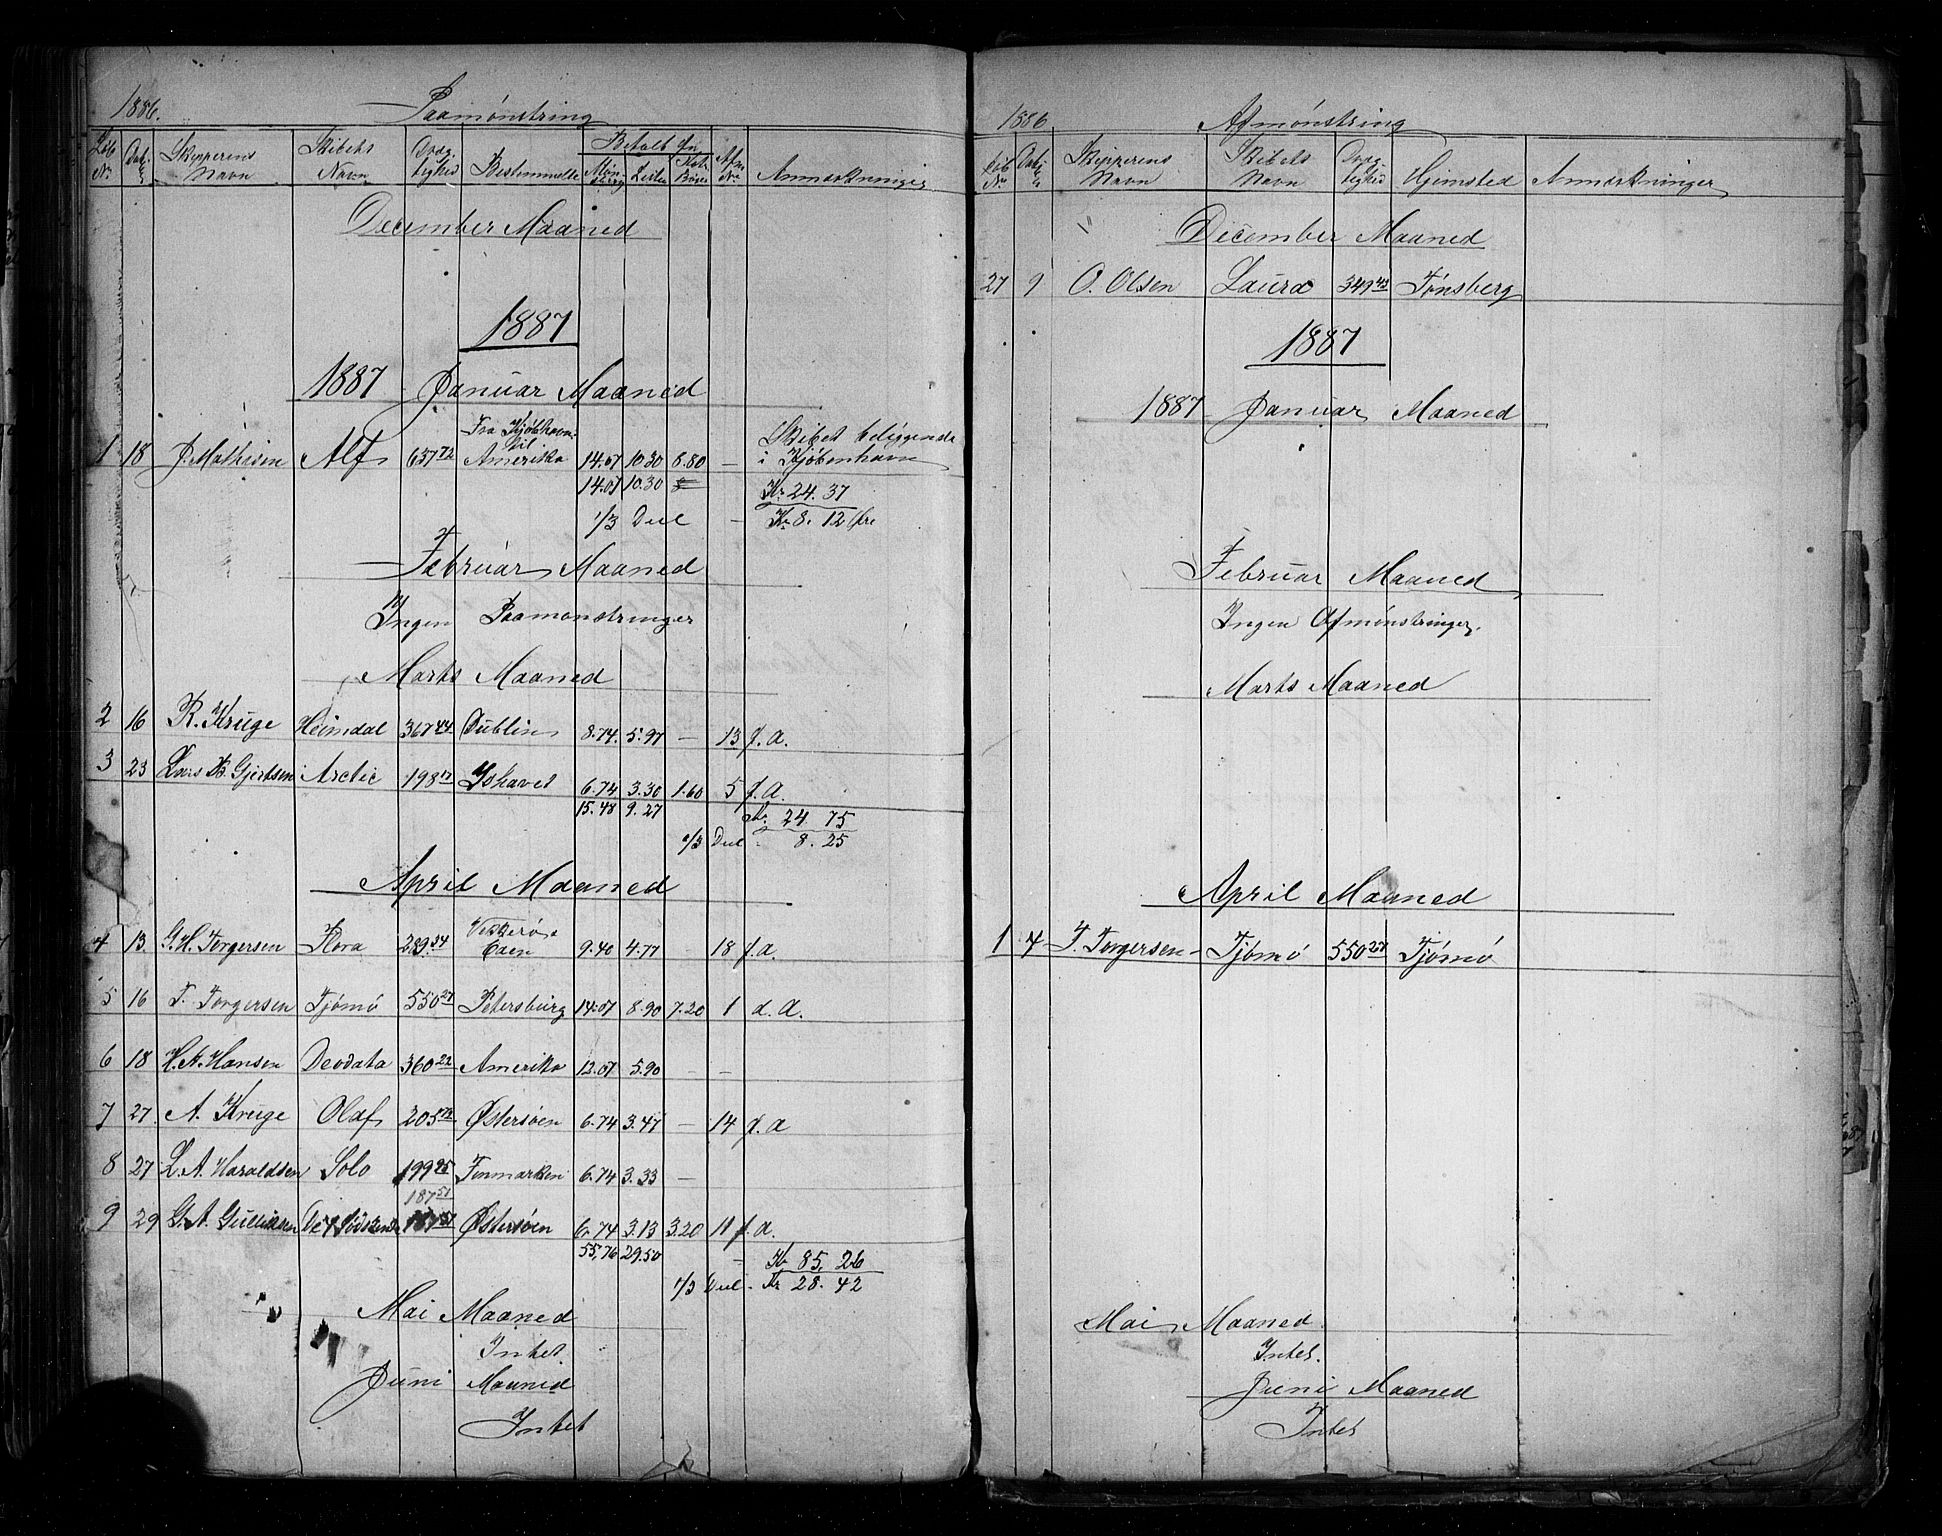 1886.
Paamønstring
Løb No. Dato Skipperens Navn Skibets Navn Dræg-tighed Bestemmelse Betalt for Møn-string Lister Kont. Bøger Afm. No. Anmærkninger
December Maaned
1887
1887 Januar Maaned
1 18 J. Mathisen Alf 637 72 Fra Kjøbhavn til Amerika 14.07 10.30 8.80 — Skibet beliggende i Kjøbenhavn
14.07 10.30 Kr. 24.37
1/3 Deel — Kr 8.12 Øre
Februar Maaned
Ingen Paamonstringer
Marts Maaned
2 16 R. Kruge Heimdal 367 44 Dublin 8.74. 5.97 — 13 f.a.
3 23 Lars B. Gjertsen Arctic 198 17 Ishavet 6.74 3.30 1.60 5 f.a.
15.48 9.27 Kr. 24.75
1/3 Deel 8.25
April Maaned
4 13. G.H. Torgersen Flora 289.54 Vesterø Caen 9.40 4.77 — 18 f.a.
5 16 T. Torgersen Tjømø 550 27 Petersburg 14.07 8.90 7.20 1 d.a.
6 18 H.A. Hansen Deodata 360 22 Amerika 12.07 5.90 — —
7 27 A. Kruge Olaf 205 72 Østersøen 6.74 3.47 — 14 f.a
8 27 L.A. Haraldsen Solo 199 95 Finmarken 6.74 3.33 —
187 51
9 29 G.A. Gulliksen De 7 Sødskende 187 51 Østersøen 6.74 3.13 3.20 11 f.a.
55,76 29.50 — Kr 85,26
1/3 Deel - Kr 28.42
Mai Maaned
Intet.
Juni Maaned
Intet
1886
Afmønstring
Løb No Dato Skipperens Navn Skibets Navn Dræg-tighed Hjemsted Anmærkninger
December Maaned
27 9 O. Olsen Laura 349 43 Tønsberg
1887
1887 Januar Maaned
Februar Maaned
Ingen Afmønstringer.
Marts Maaned
April Maaned
1 4 T. Torgersen Tjømø 550 27 Tjømø
Mai Maaned.
Intet.
Juni Maaned
Intet